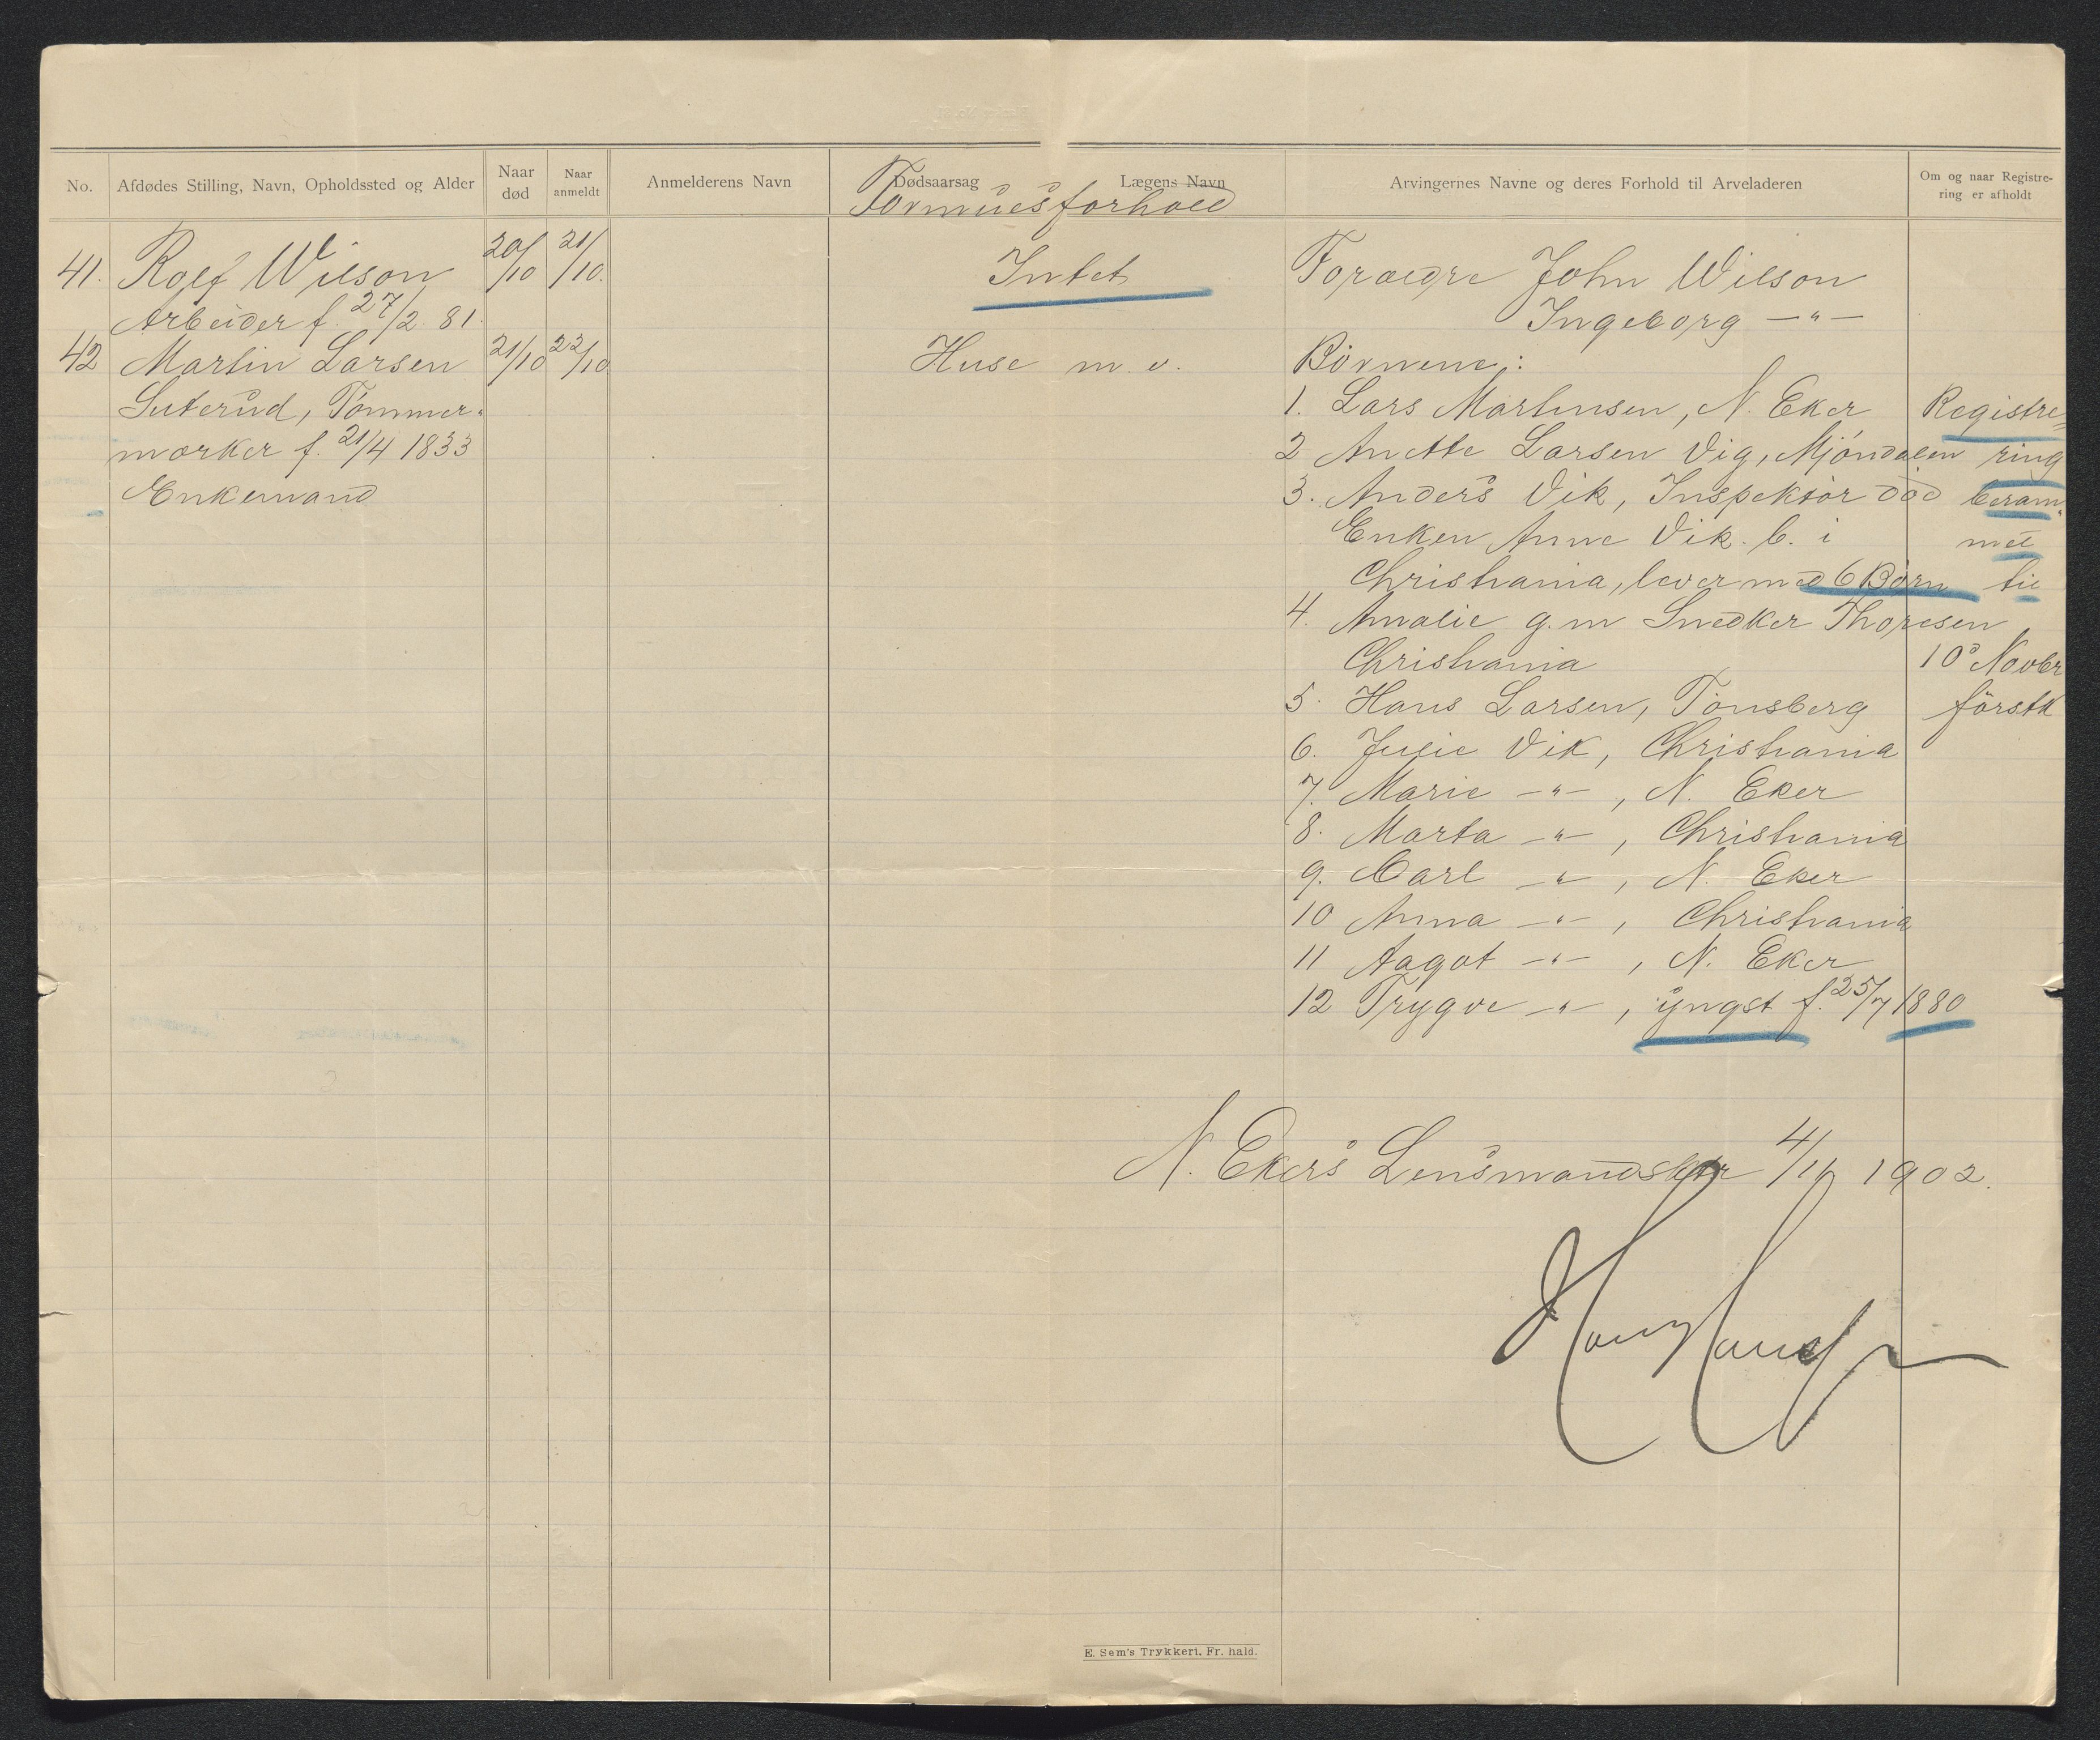 No.
Afdødes Stilling, Navn, Opholdssted og Alder
Naar død
Naar anmeldt
Anmelderens Navn
Dødsaarsag
Lægens Navn
Formuesforhold
Arvingernes Navne og deres Forhold til Arveladeren
Om og naar Registre-
ring er afholdt
41. Rolf Wilson 20/10 21/10. Intet Forældre John Wilson
Arbeider f. 27/2 81. Ingeborg — " —
42 Martin Larsen 21/10 22/10 Huse m. v. Børnene:
Suterud, Tømmer- 1. Lars Martinsen, N. Eker Registre=
mærker f. 21/4 1833 2 Anette Larsen Vig, Mjøndalen ring
Enkemand 3. Anders Vik, Inspektør død beram-
Enken Anne Vik. b. i met
Christiania, lever med 6 Børn til
4. Amalie g. m Snedker Thoresen
Christiania 10 Novbr
5. Hans Larsen, Tønsberg førstk
6. Julie Vik, Christiania
7. Marie — " — , N. Eker
8. Marta — " — , Christiania
9. Carl — " — , N. Eker
10 Anna — " — , Christiania
11 Aagot — " — , N. Eker
12 Trygve — " — , yngst f. 25/7 1880
N. Ekers Lensmandsktr 4/11 1902.
E. Sem's Trykkeri, Fr. hald.